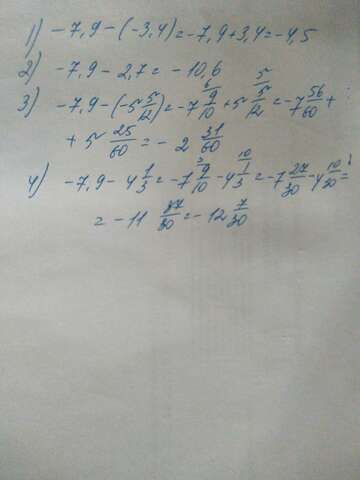 1) -7,9-(-3,4)=-7,9+3,4=-4,5
2) -7,9-2,7=-10,6
3) -7,9-(-5 5/12)=-7 9/10 (6) +5 5/12 (5) =-7 56/60+
+5 25/60=-2 31/60
4) -7,9-4 1/3=-7 9/10 (3) -4 1/3 (10) =-7 27/30-4 10/30=
=-11 37/30=-12 7/30